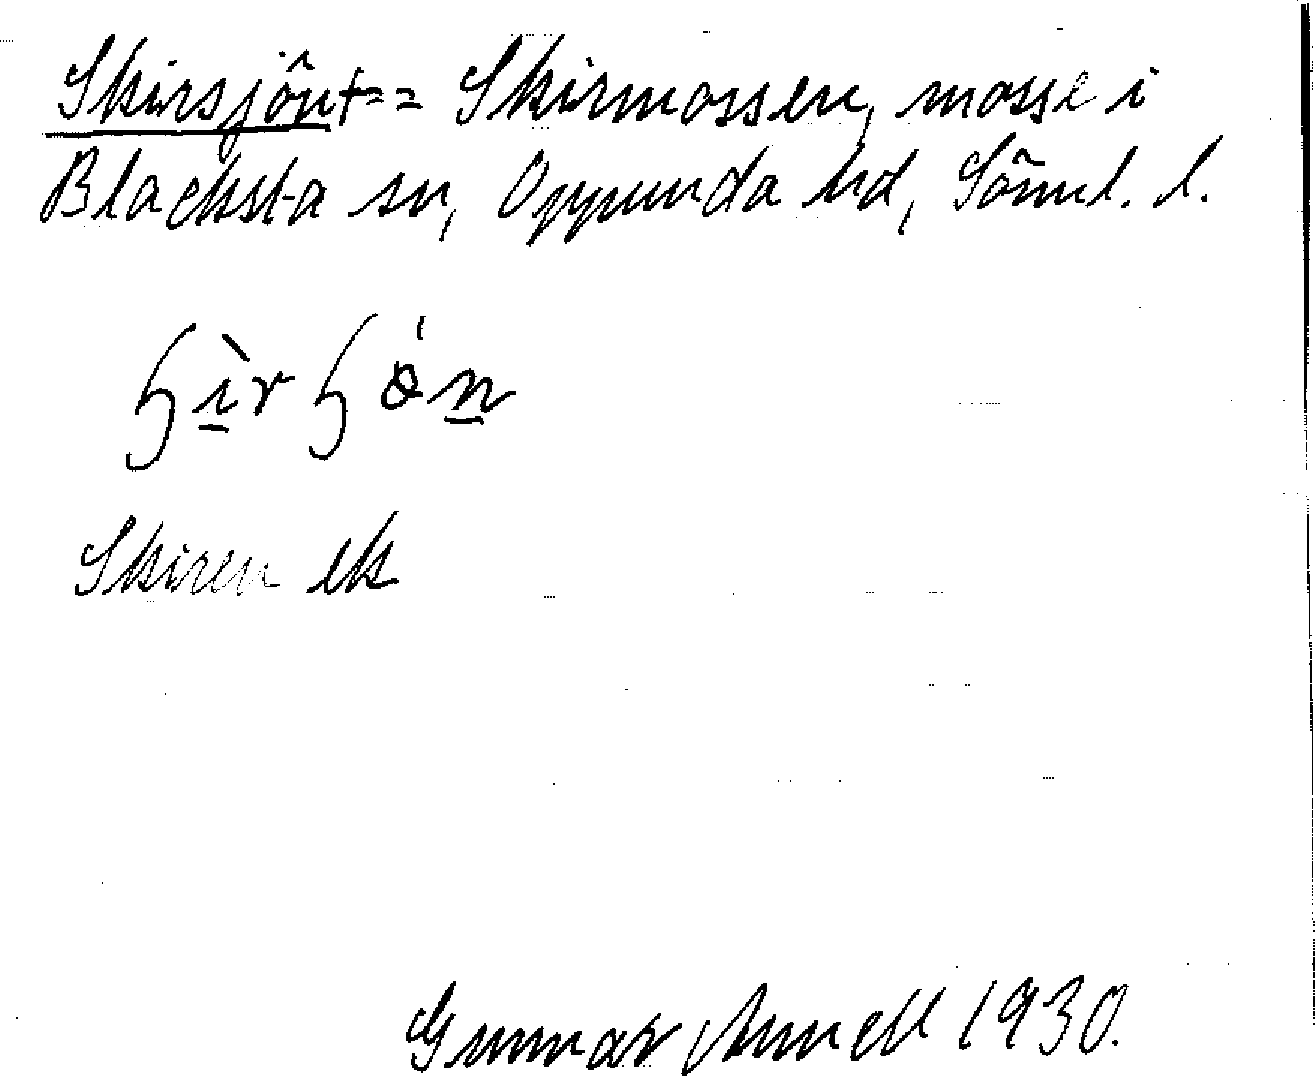 Skirsjön† = = Skirmossen, mosse i
Blacksta sn, Oppunda hd, Söml. l.
ɧìrɧǿn
Skiren ek
Gunnar Annell 1930.